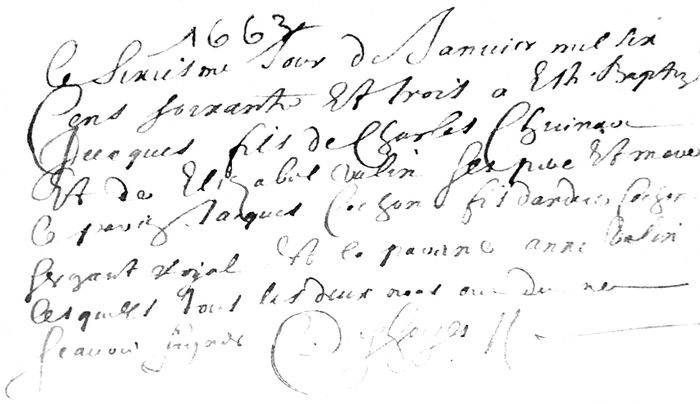 1663
Ce sixiesme Jour de Janvier mil six
Cens soixante Et trois a Esté Baptizé
Jacques fils de Charles
Et de Elizabet Valin ses pere Et mere
le parin Jacques Cochon fils d'andre Cochon
sergant Royal Et la marine anne Valin
lesquels tous les deux nous ont dit ne
scavoir signer